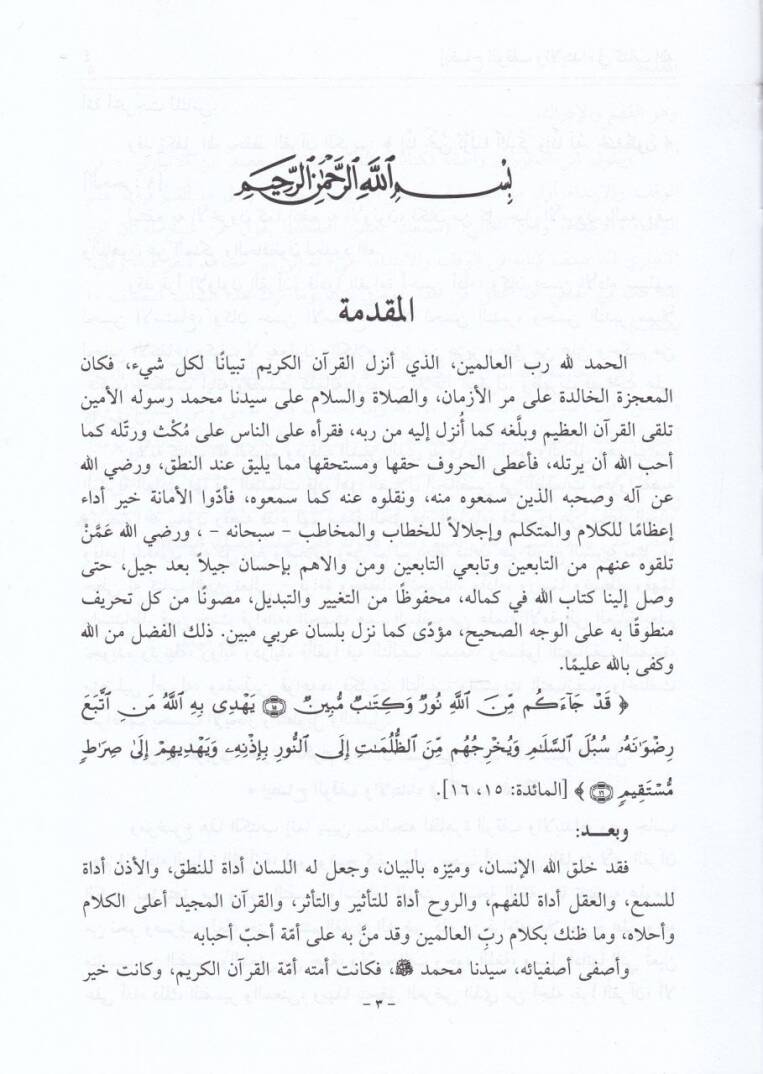 بِسْمِ ٱللَّهِ ٱلرَّحْمَٰنِ ٱلرَّحِيمِ
المقدمة
الحمد لله رب العالمين، الذي أنزل القرآن الكريم تبيانًا لكل شيء، فكان
المعجزة الخالدة على مر الأزمان، والصلاة والسلام على سيدنا محمد رسوله الأمين
تلقى القرآن العظيم وبلَّغه كما أُنزل إليه من ربه، فقرأه على الناس على مُكْث ورتَّله كما
أحب الله أن يرتله، فأعطى الحروف حقها ومستحقها مما يليق عند النطق، ورضي الله
عن آله وصحبه الذين سمعوه منه، ونقلوه عنه كما سمعوه، فأدّوا الأمانة خير أداء
إعظامًا للكلام والمتكلم وإجلالاً للخطاب والمخاطب - سبحانه - ، ورضي الله عَمَّنْ
تلقوه عنهم من التابعين وتابعي التابعين ومن والاهم بإحسان جيلاً بعد جيل، حتى
وصل إلينا كتاب الله في كماله، محفوظًا من التغيير والتبديل، مصونًا من كل تحريف
منطوقًا به على الوجه الصحيح، مؤدّى كما نزل بلسان عربي مبين. ذلك الفضل من الله
وكفى بالله عليمًا.
﴿ قَدْ جَاءَكُم مِّنَ ٱللَّهِ نُورٌ وَكِتَٰبٌ مُّبِينٌ ۝١٥ يَهْدِى بِهِ ٱللَّهُ مَنِ ٱتَّبَعَ
رِضْوَٰنَهُۥ سُبُلَ ٱلسَّلَٰمِ وَيُخْرِجُهُم مِّنَ ٱلظُّلُمَٰتِ إِلَى ٱلنُّورِ بِإِذْنِهِۦ وَيَهْدِيهِمْ إِلَىٰ صِرَٰطٍ
مُّسْتَقِيمٍ ۝١٦ ﴾ [المائدة: ١٥، ١٦].
وبعـد:
فقد خلق الله الإنسان، وميّزه بالبيان، وجعل له اللسان أداة للنطق، والأذن أداة
للسمع، والعقل أداة للفهم، والروح أداة للتأثير والتأثر، والقرآن المجيد أعلى الكلام
وأحلاه، وما ظنك بكلام ربِّ العالمين وقد منَّ به على أمّة أحبّ أحبابه
وأصفى أصفيائه، سيدنا محمد ﷺ، فكانت أمته أمّة القرآن الكريم، وكانت خير
- ٣ -